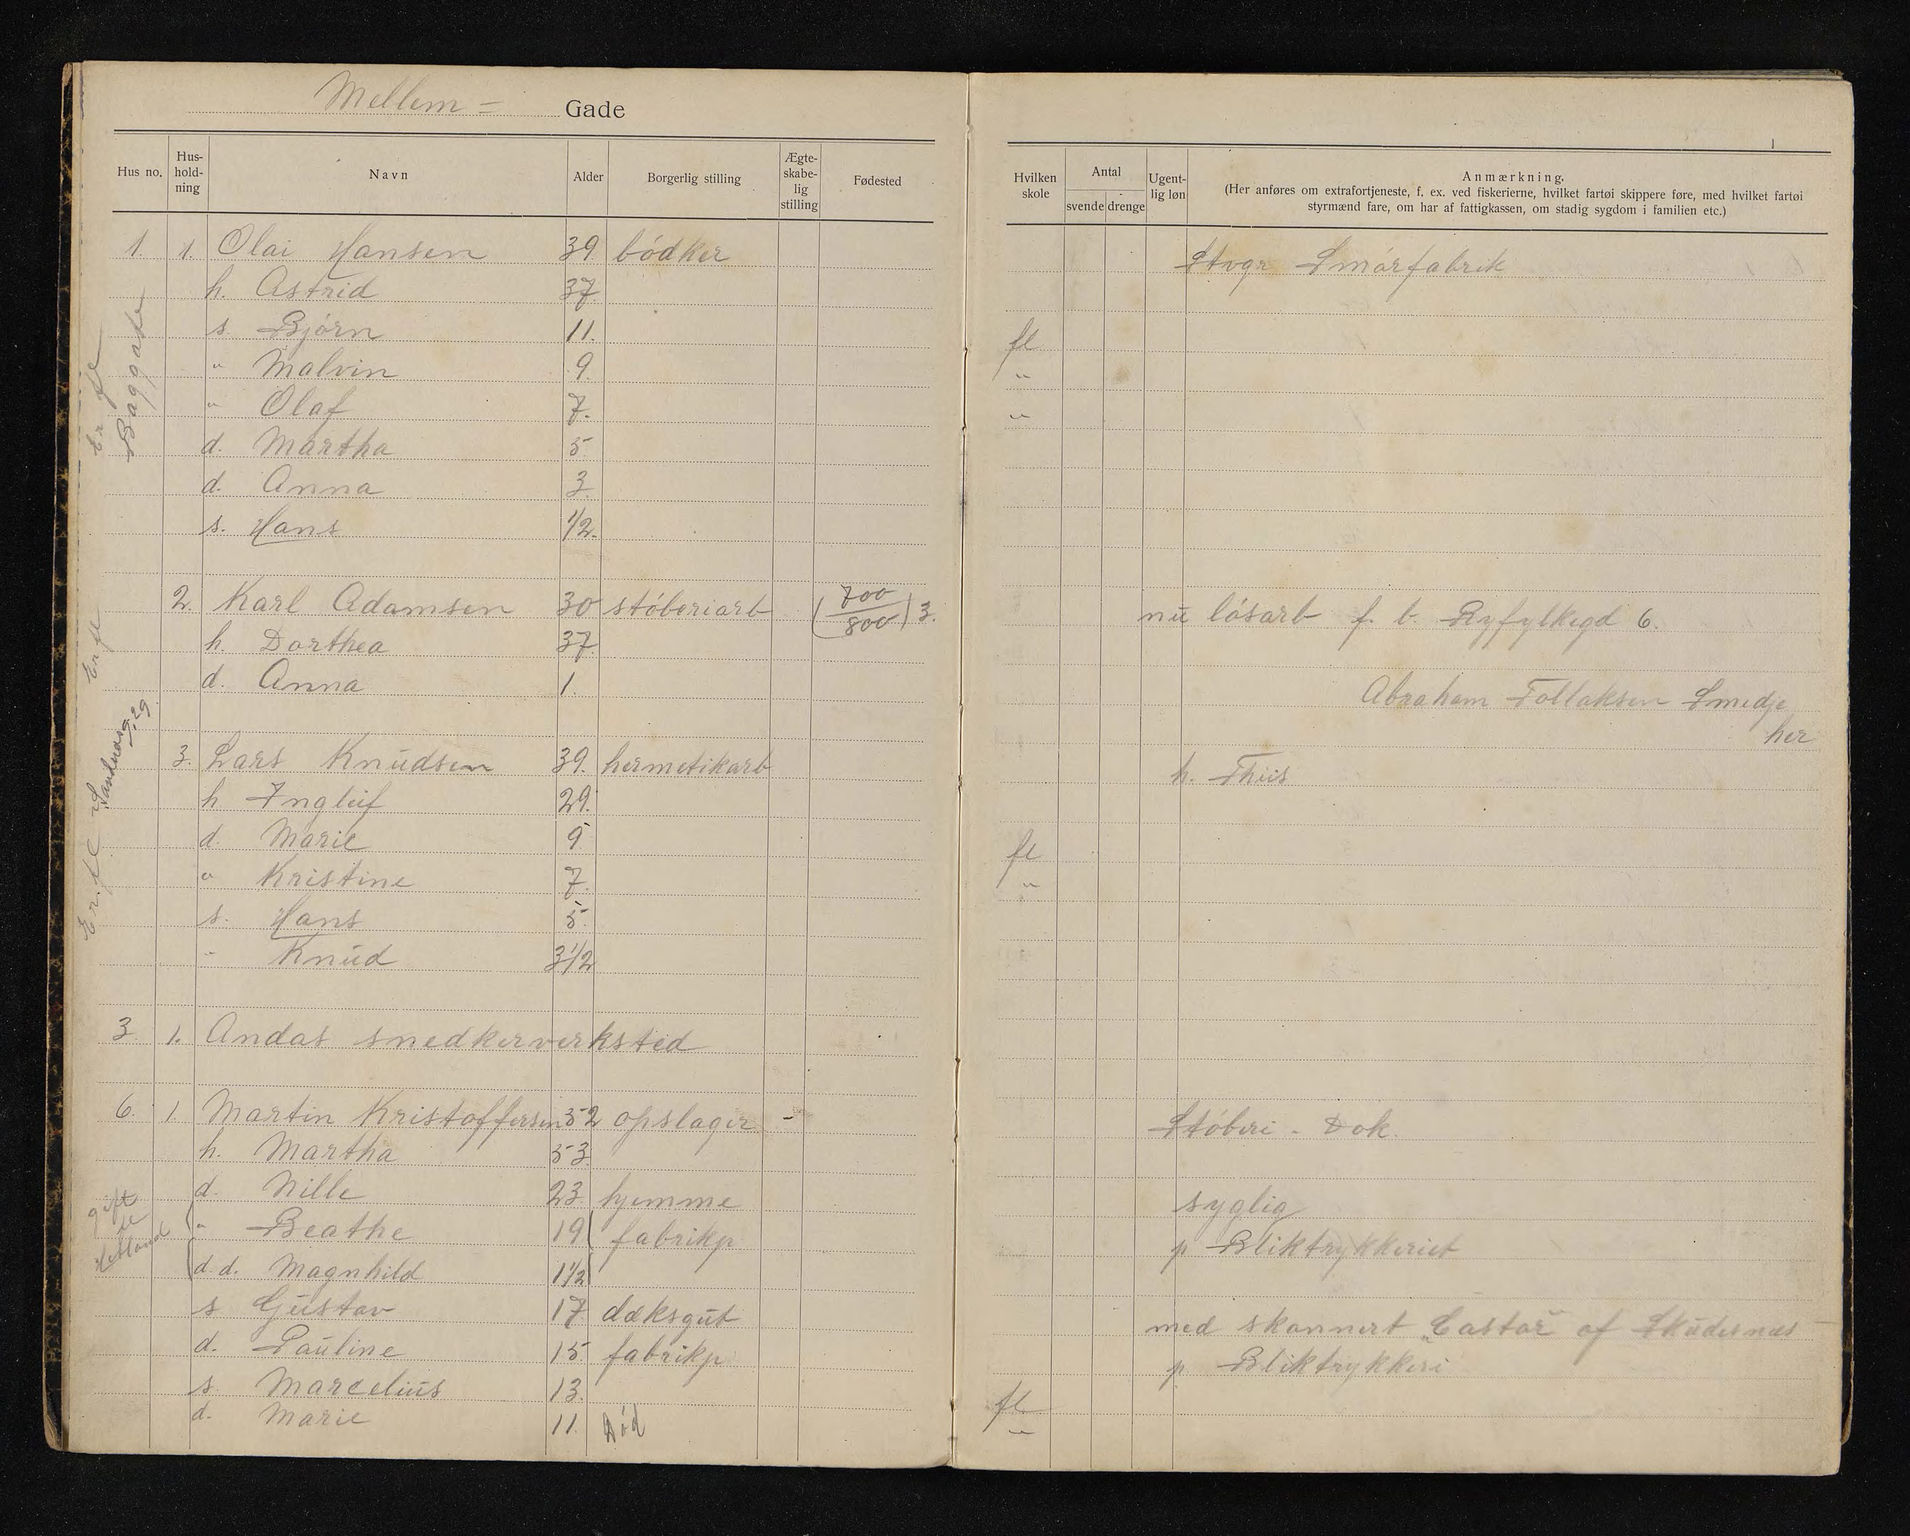 Mellem = Gade
Hus no. Hus-hold-ning Navn Alder Borgerlig stilling Ægte-skabe-lig stilling Fødested
Hvilken skole Antal svende drenge Ugent-lig løn Anmærkning.
(Her anføres om extrafortjeneste, f. ex. ved fiskerierne, hvilket fartøi skippere føre, med hvilket fartøi
styrmænd fare, om har af fattigkassen, om stadig sygdom i familien etc.)
1. 1. Olai Hansen 39 bódker Stvgr Smórfabrik
h. Astrid 37
s. Bjórn 11. fl
" Malvin 9. "
" Olaf 7. "
d. Martha 5
d. Anna 3
s. Hans 1/2.
Er fl
Baggade
2. Karl Adamsen 30 stóberiarb (700/800) 3. nu lósarb f. b. Ryfylkegd 6.
h. Dorthea 37
d. Anna 1. Abraham Tollaksen Smedje
her
Er fl
3. Lars Knudsen 39. hermetikarb h. Thiis
h Ingleif 29.
d. Marie 9 fl
" Kristine 7. "
s. Hans 5
" Knud 3 1/2
Er. fl
Sandnesg. 29
3 1. Andas snedkerverksted
6. 1. Martin Kristoffersen 52 opslager - Stóberi - Dok.
h. Martha 53
d. Nille 23 hjemme syglig
" Beathe 19 fabrikp p Bliktrykkeriet
d. d. Magnhild 1 1/2
gift
fl
Hetland
s Gustav 17 dæksgut med skonnert "Castor" af Skudesnæs
d. Pauline 15 fabrikp p Bliktrykkeri
s Marcelius 13. fl
d. Marie 11. Dód "